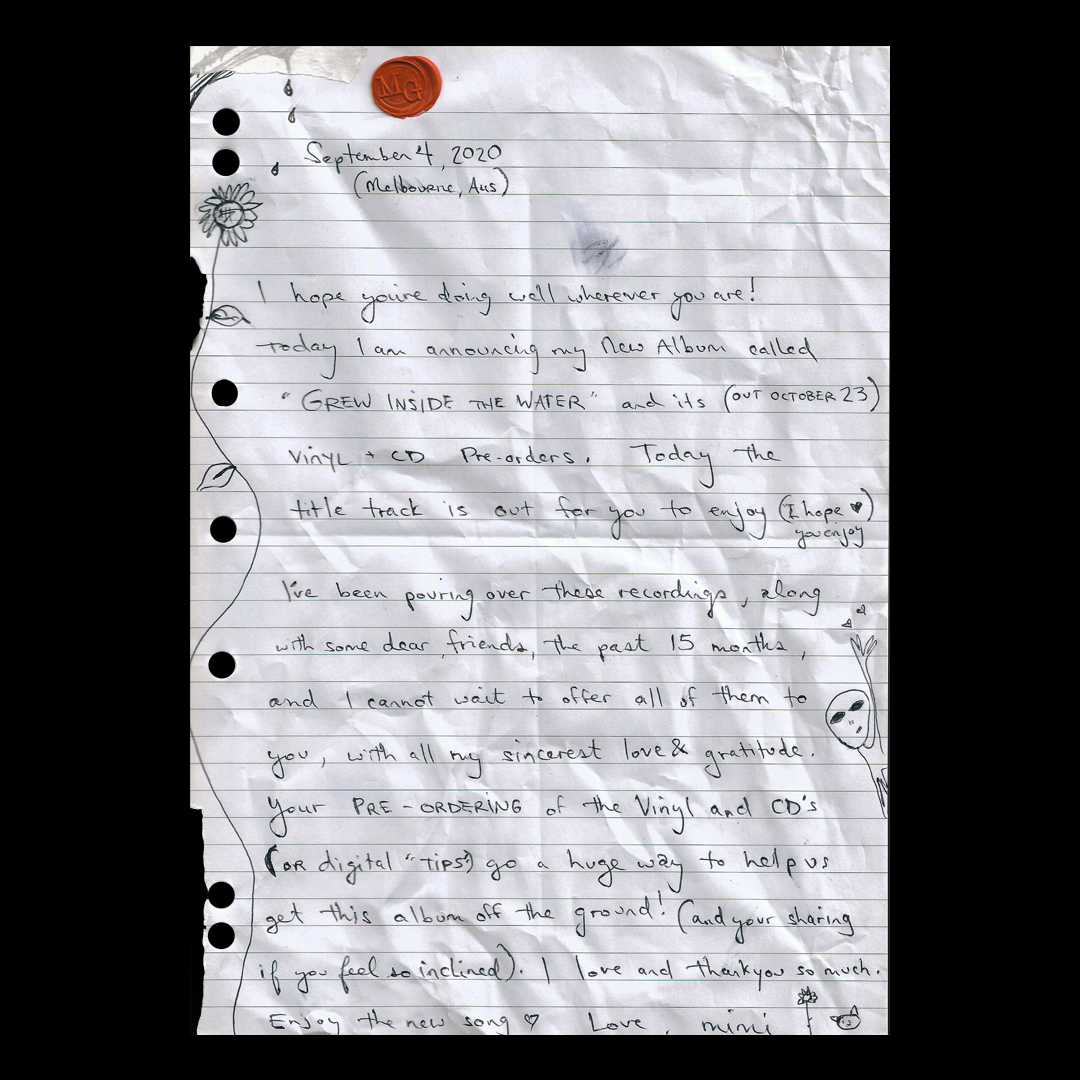 MG
September 4, 2020
(Melbourne, Aus)
I hope you're doing well wherever you are!
Today I am announcing my New Album called
"GREW INSIDE THE WATER" and its (OUT OCTOBER 23)
Vinyl + CD Pre-orders. Today the
title track is out for you to enjoy (I hope ♥)
you enjoy
I've been pouring over these recordings, along
with some dear friends, the past 15 months,
and I cannot wait to offer all of them to
you, with all my sincerest love & gratitude.
Your PRE-ORDERING of the Vinyl and CD's
(OR digital "TIPS") go a huge way to help us
get this album off the ground! (and your sharing
if you feel so inclined). I love and thankyou so much.
Enjoy the new song ♡ Love, mimi